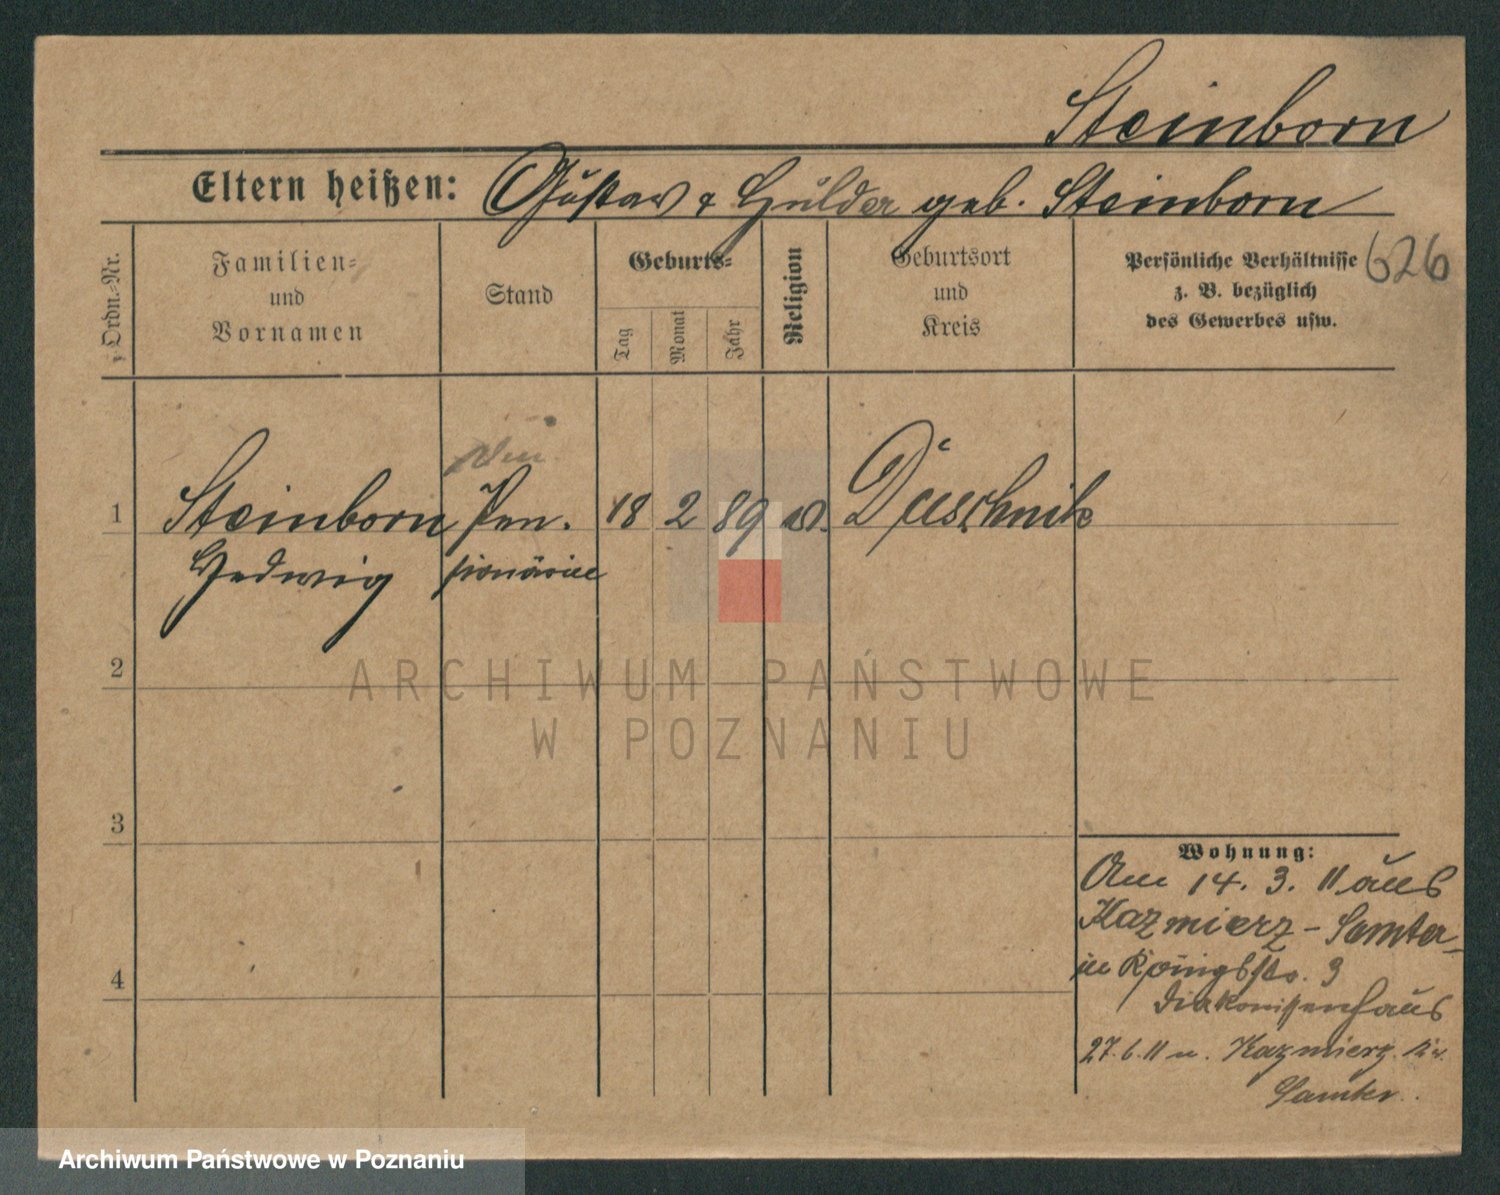 Steinborn
Eltern heißen: Gustav & Hulda geb. Steinborn
Ordn.-Nr.
Familien-
und
Vornamen
Stand
Geburts-
Tag
Monat
Jahr
Religion
Geburtsort
und
Kreis
Persönliche Verhältnisse
z. B. bezüglich
des Gewerbes usw.
626
1 Steinborn Pen. 18 2 89 ev. Duschnik
Hedwig sionärin
2
ARCHIWUM PAŃSTWOWE
W POZNANIU
3
4
Wohnung:
Am 14. 3. 11 aus
Kazmierz - Samter
in Königsstr. 3
Diakonissenhaus
27. 6. 11 n. Kazmierz
Samter.
Archiwum Państwowe w Poznaniu